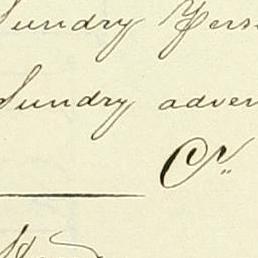 Sundry Pers
Sundry adver
Cr